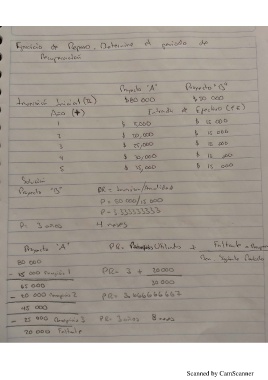 Ejercicio de Repaso. Determine el periodo de
Recuperación
Proyecto "A" Proyecto "B"
Inversión Inicial $80 000 $50 000
Año Entrada de Efectivo
1 $ 15,000 $ 15 000
2 $ 20,000 $ 15 000
3 $ 25,000 $ 15 000
4 $ 30,000 $ 15 000
5 $ 35,000 $ 15 000
Solución
Proyecto "B" PR = Inversión/Anualidad
P = 50 000/15 000
P = 3.333333333
P= 3 años 4 meses
Proyecto "A" PR= Utilizados + Faltante
80 000
- 15 000 1 PR= 3 + 20 000
65 000 30 000
- 20 000 2 PR= 3.666666667
45 000
- 25 000 3 PR= 3 años 8 meses
20 000 Faltante
Scanned by CamScanner